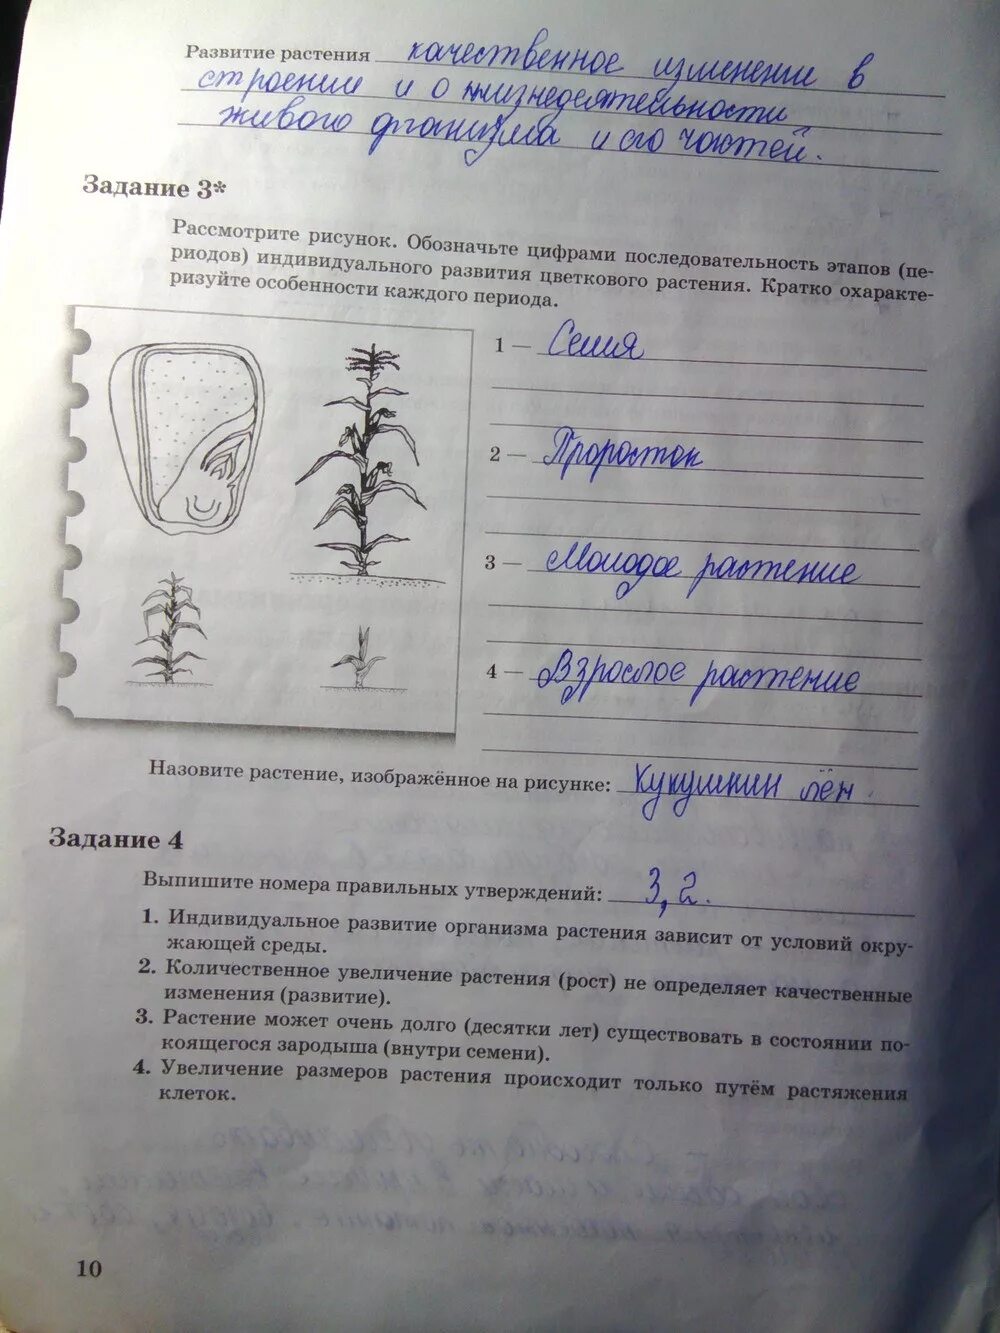 Развитие растения качественное изменение в
строении и о жизнедеятельности
живого организма и его частей.
Задание 3*
Рассмотрите рисунок. Обозначьте цифрами последовательность этапов (пе-
риодов) индивидуального развития цветкового растения. Кратко охаракте-
ризуйте особенности каждого периода.
1 — Семя
2 — Проросток
3 — Молодое растение
4 — Взрослое растение
Назовите растение, изображённое на рисунке: Кукушкин лён.
Задание 4
Выпишите номера правильных утверждений: 3, 2.
1. Индивидуальное развитие организма растения зависит от условий окру-
жающей среды.
2. Количественное увеличение растения (рост) не определяет качественные
изменения (развитие).
3. Растение может очень долго (десятки лет) существовать в состоянии по-
коящегося зародыша (внутри семени).
4. Увеличение размеров растения происходит только путём растяжения
клеток.
10